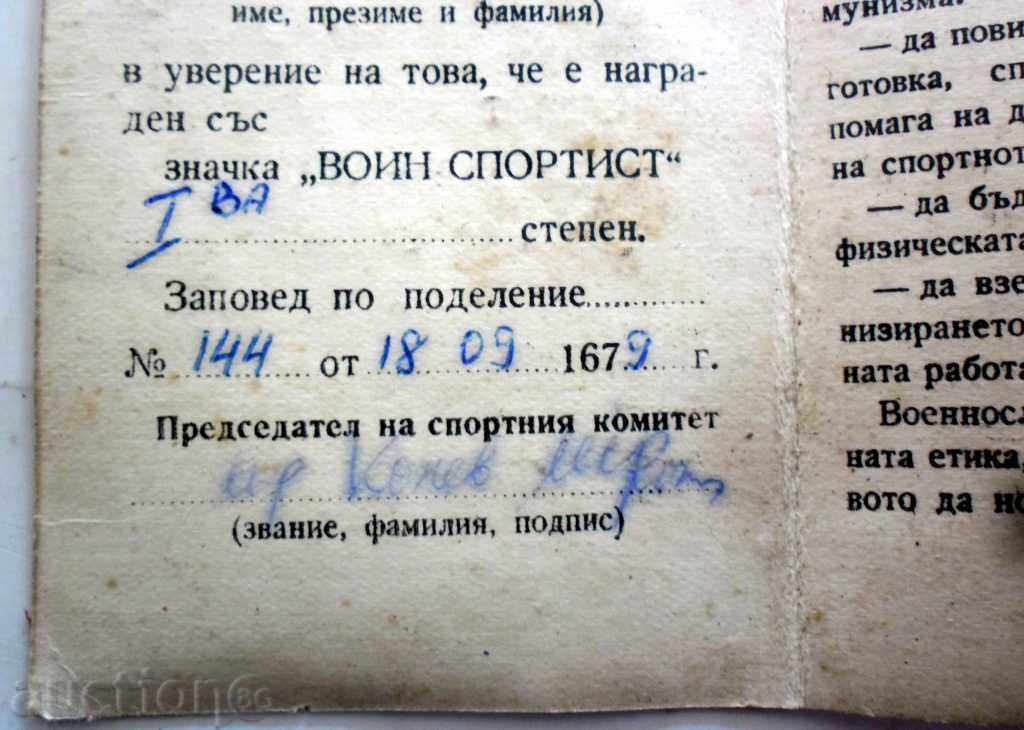 име, презиме и фамилия)
в уверение на това, че е награ-
ден със
значка „ВОИН СПОРТИСТ“
I ВА степен.
Заповед по поделение
№ 144 от 18 09 1679 г.
Председател на спортния комитет
Колев
(звание, фамилия, подпис)
мунизма.
— да пови
готовка, сп
помага на д
на спортнот
— да бъд
физическата
— да взе
низирането
ната работа
Военносл
ната етика,
вото да но
auction BG